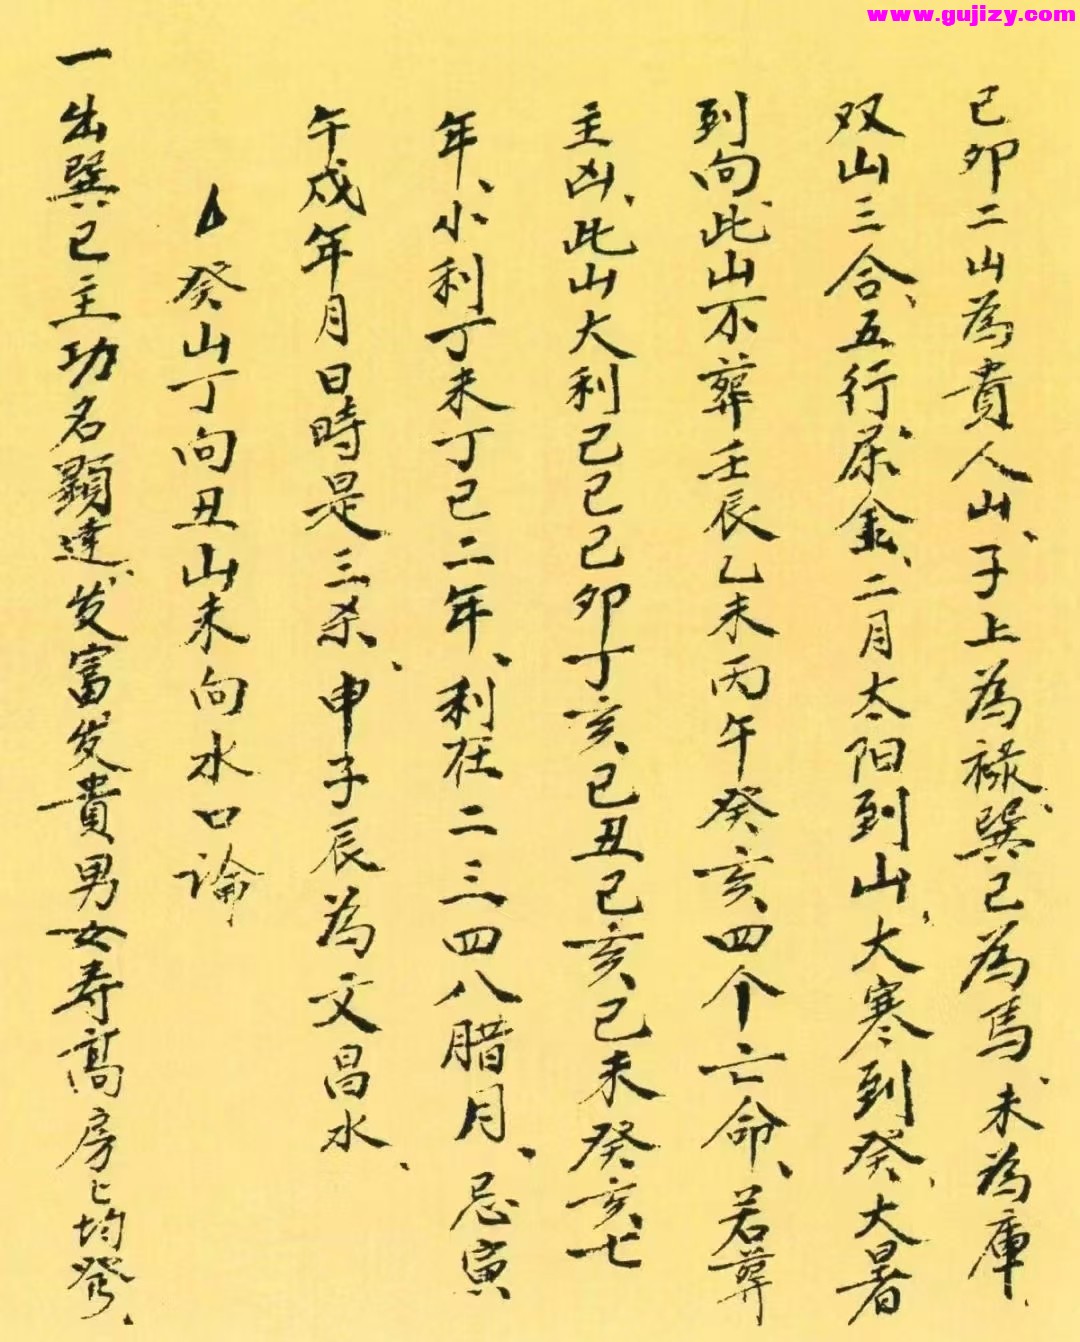 www.gujizy.com
巳卯二山為貴人山、子上為禄、巽巳為馬、未為庫、
双山三合、五行属金、二月太阳到山、大寒到癸、大暑
到向、此山不葬壬辰乙未丙午癸亥四个亡命、若葬
主凶、此山大利己巳己卯丁亥、己丑己亥、己未癸亥、七
年、小利丁未丁巳二年、利在二三四八腊月、忌寅
午戌年月日時是三杀、申子辰為文昌水、
癸山丁向丑山未向水口論
一出巽巳主功名顯達、发富发貴男女寿高房匕均發、